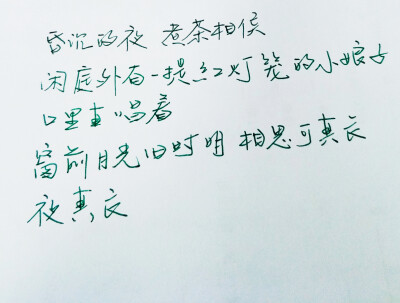 昏沉的夜 煮茶相侯
闲庭外有一提红灯笼的小娘子
口里直唱着
窗前月光旧时明 相思可真长
夜真长